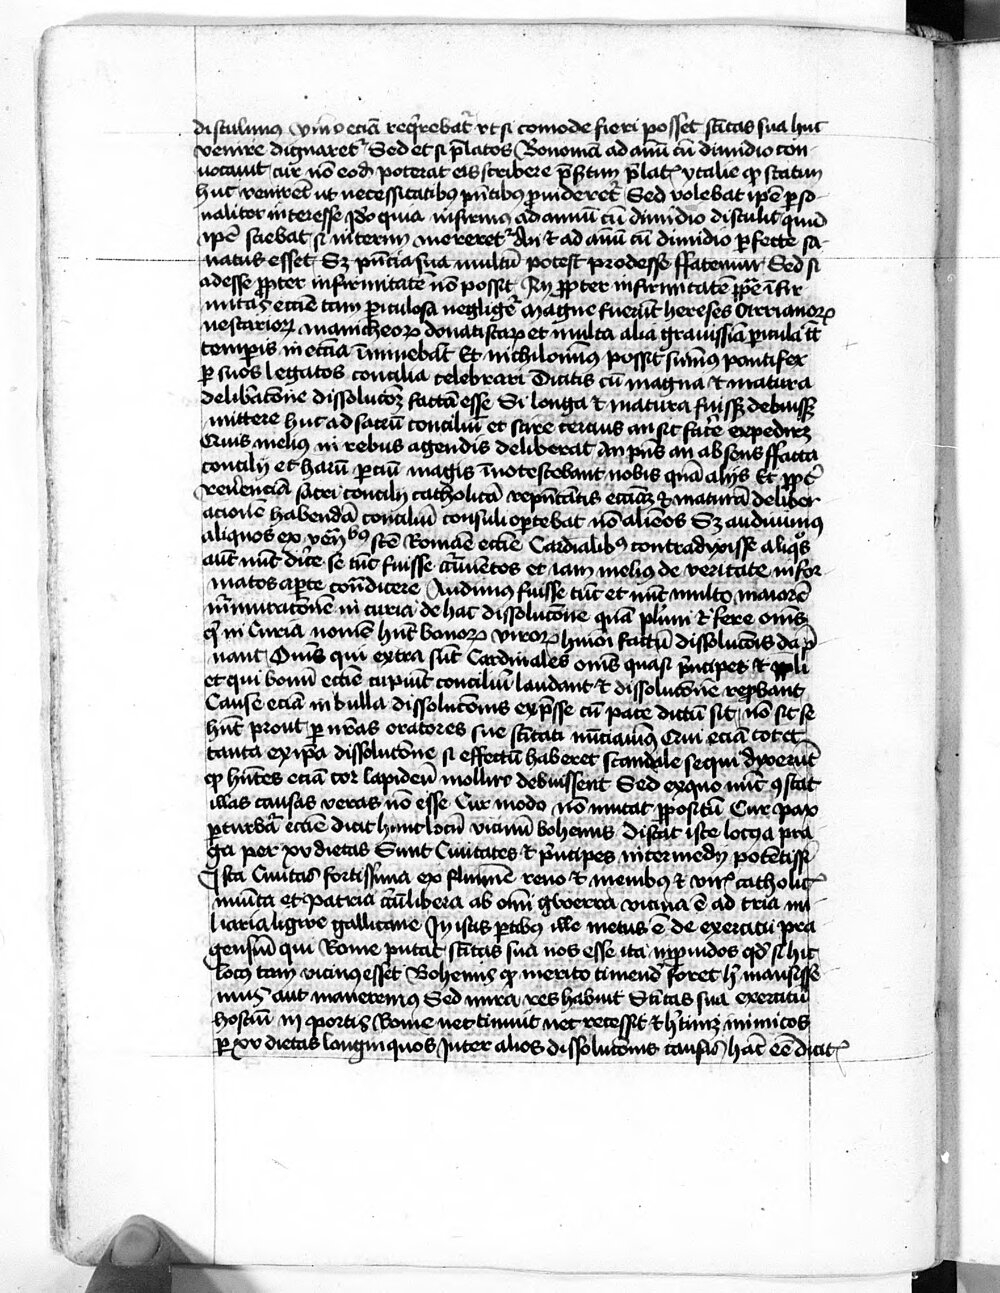 distulimus ymmo eciam requirebatur vt si comode fieri posset sanctitas sua huc
venire dignaretur Sed et si prelatos Bononiam ad annum cum dimidio con-
uocauit cur non eodem poterat eis scribere presertim prelatis ytalie quod statim
huc venirent ut necessitatibus presentibus prouideretur Sed volebat ipse perso-
naliter interesse ideo quia infirmus ad annum cum dimidio distulit quid
ipse sciebat si interim moreretur An et ad annum cum dimidio perfecte sa-
natus esset Sed presencia sua multum potest prodesse ffatemur Sed si
adesse propter infirmitatem non possit An propter infirmitatem proprie infir
mitas ecclesie tam periculosa negligetur Magne fuerunt hereses Arrrianorum
nestoriorum manicheorum donatistarum et multa alia grauissima pericula illis
temporis in ecclesia imminebant Et nichilominus possit summus pontifex
per suos legatos concilia celebrari Dicitis cum magna et matura
deliberatione dissolucionem factam esse Si longa et matura fuisset debuisset
mittere huc ad sacrum concilium et scire cercius an sic facere expediret
Quis melius in rebus agendis deliberat An presens an absens ffacta
concilij et harum parcium magis innotescebant nobis quam alijs Et propter
reuerenciam sacri concilij catholicam representantis ecclesiam et maturam deliber
acionem habendam concilium consuli oportebat non alienos Sed audiuimus
aliquos ex venerabilibus sancte Romane ecclesie Cardinalibus contradyxisse aliquos
autem nunc dicere se tunc fuisse et iam melius de veritate infor
matos aperte contradicere Audimus fuisse tunc et nunc multo maiorem
murmuracionem in curia de hac dissolucione quam plurimi et fere omnes
qui in Curia nomen habent bonorum virorum huiusmodi factum dissolucionis dampnant
Omnes qui extra sunt Cardinales omnes quasi principes et populi
et qui bonum ecclesie cupiunt concilium laudant et dissolucionem reprobant
Cause eciam in bulla dissolucionis expresse cum pace dictum sit non sic se
habent prout per nostras oratores sue sanctitati nunciamus Qui eciam tot et
tanta ex ipsa dissolucione si effectum haberet scandala sequi dyxerunt
quod habentes eciam cor lapideum mollire debuissent Sed ex quo nunc constat
illas causas veras non esse Cur modo non mutat propositum Cur pax
perturbatur ecclesie dicit hunc locum vicinum bohemis distat iste locus a pra
ga per xv dietas Sunt Ciuitates et principes intermedij potentissimi
Ista Ciuitas fortissima ex flumine reno et menibus et viris catholicis
munita et patria libera ab omni gwerra vicina est ad tria mi
liaria ligwe gallicane In istis partibus ille metus est de exercitu pra
gensium qui Rome putat sanctitas sua nos esse ita inprouidos quod si hic
locus tam vicinus esset Bohemis quod merito timendum foret hic mansisse
mus aut maneremus Sed mira res habuit Sanctitas sua exercitum
hostium in portis Rome nec timuit nec recessit et hic timet inimicos
per xv dietas longinquos Inter alios dissolucionis causas hanc esse dicit